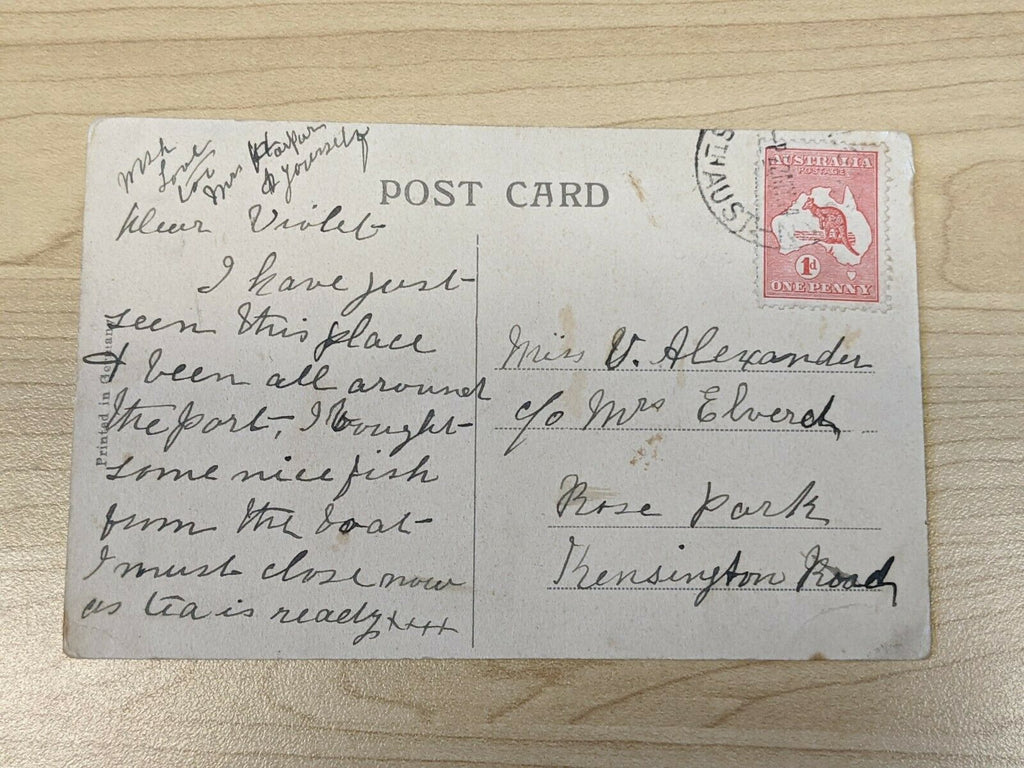 With
Love
to
Mrs Harpur
& yourself
POST CARD
Dear Violet
I have just
seen this place
& been all around
the port, I bought
some nice fish
from the boat
I must close now
as tea is ready ××××
Printed in Germany
STH AUST
AUSTRALIA
POSTAGE
1d
ONE PENNY
Miss V. Alexander
c/o Mrs Elverd
Rose Park
Kensington Road